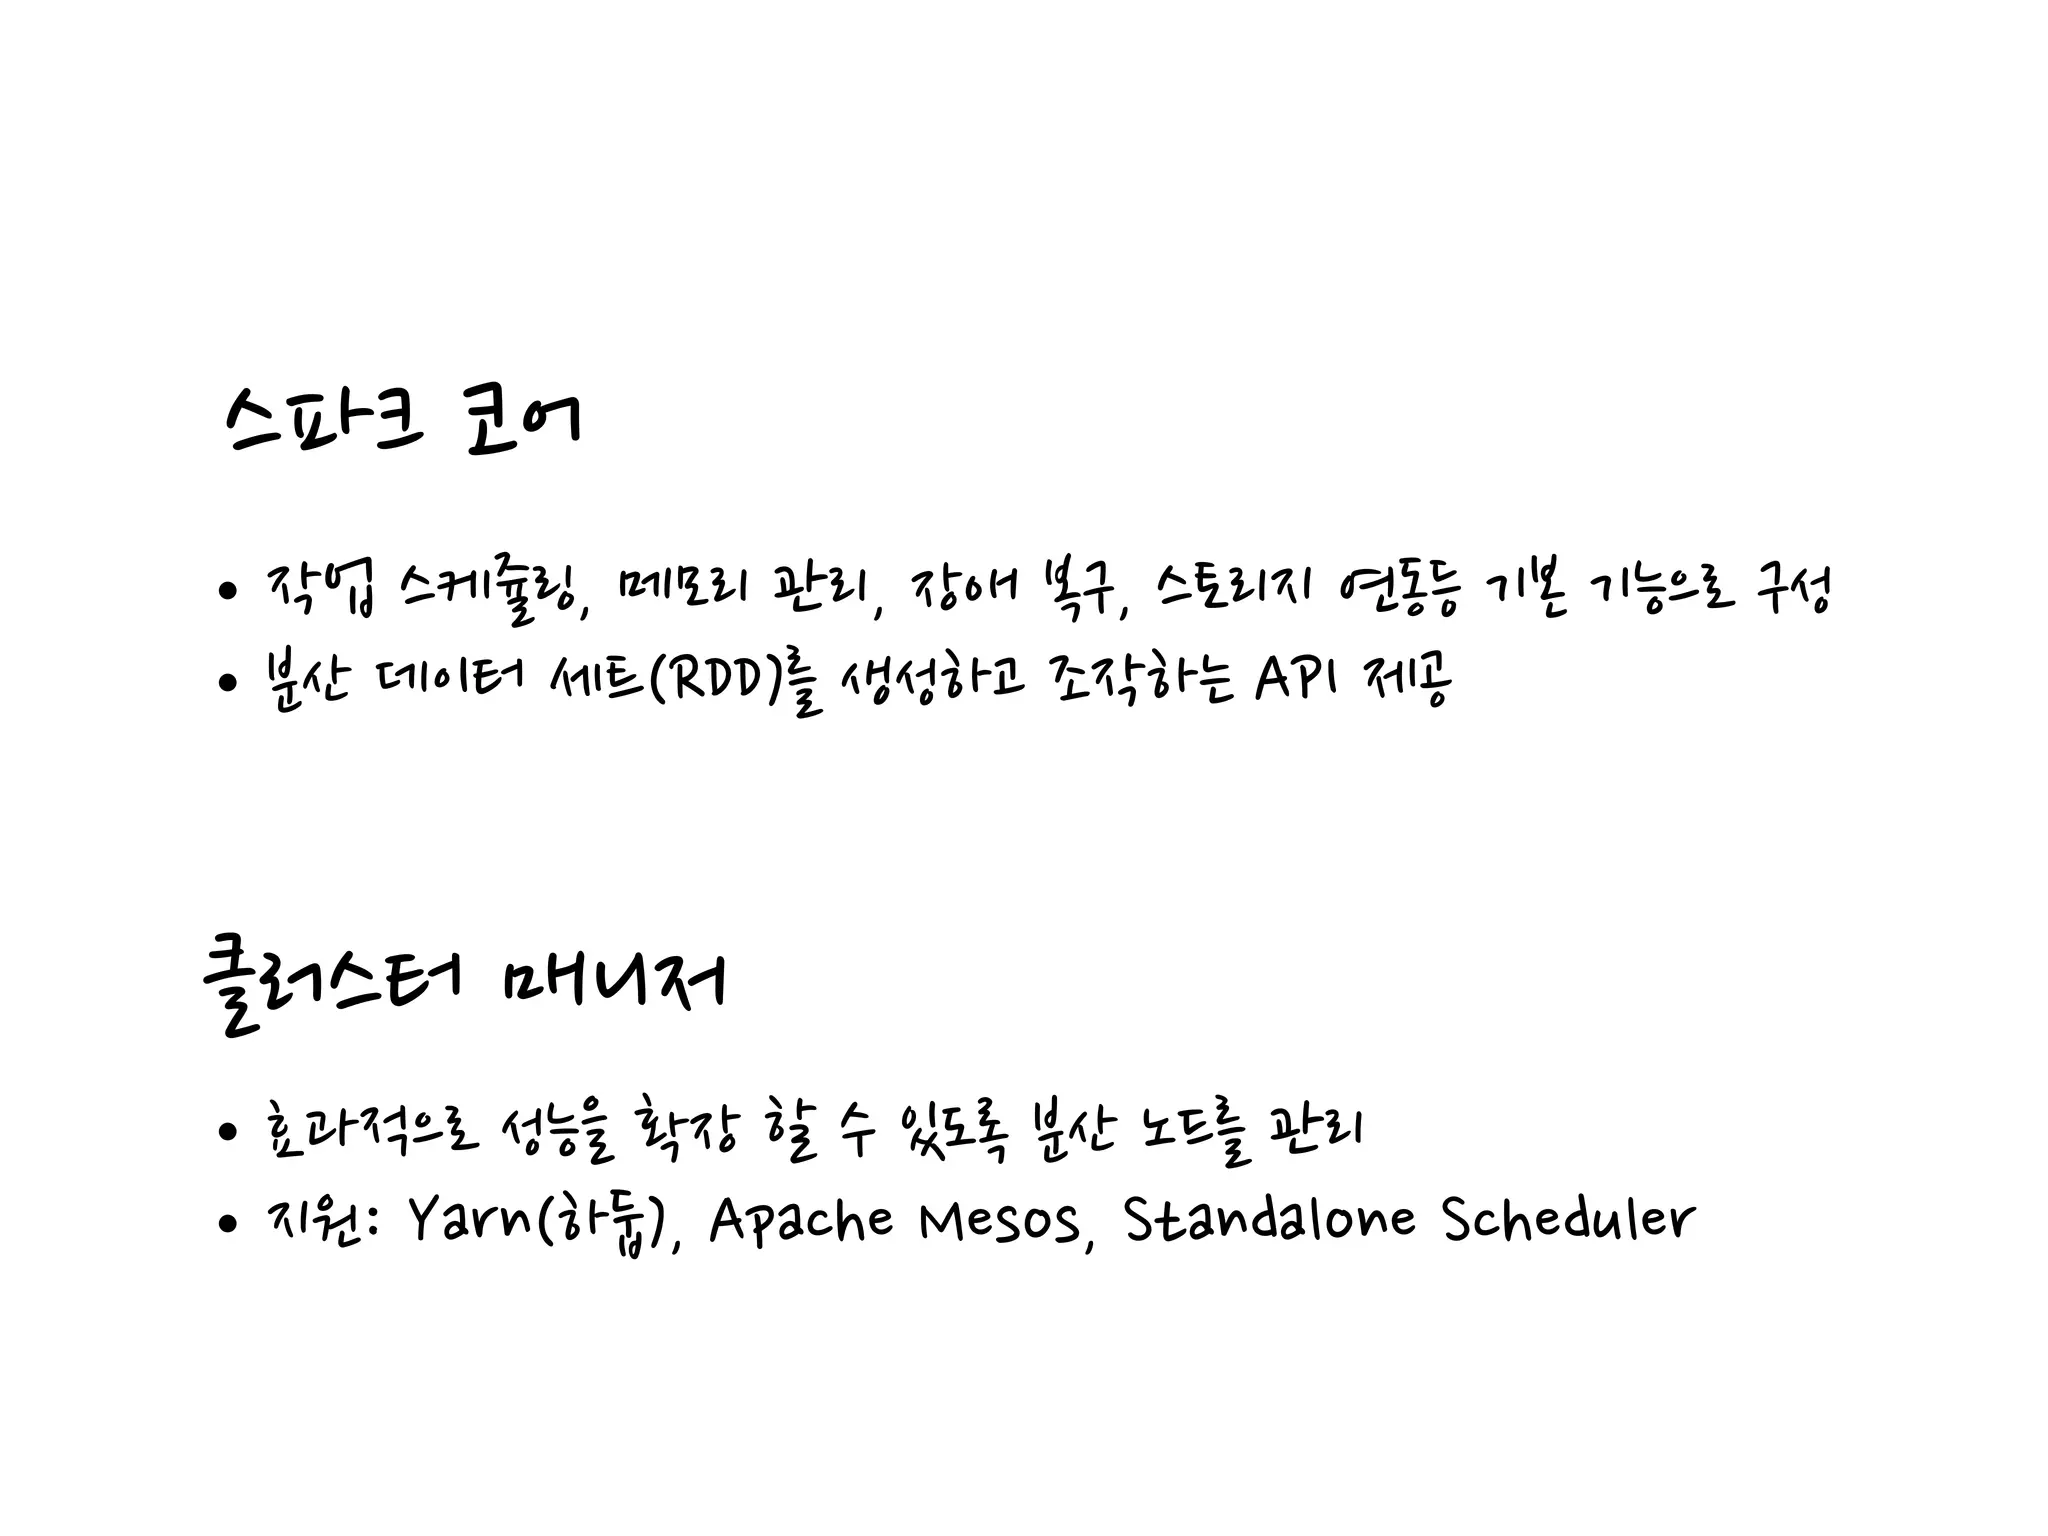 스파크 코어
• 작업 스케쥴링, 메모리 관리, 장애 복구, 스토리지 연동등 기본 기능으로 구성
• 분산 데이터 세트(RDD)를 생성하고 조작하는 API 제공
클러스터 매니저
• 효과적으로 성능을 확장 할 수 있도록 분산 노드를 관리
• 지원: Yarn(하둡), Apache Mesos, Standalone Scheduler